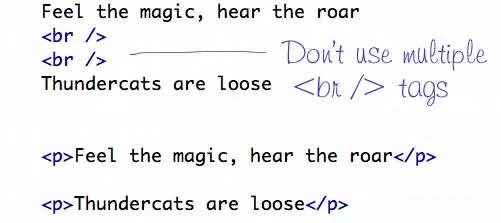 Feel the magic, hear the roar
<br />
<br />
Thundercats are loose
Don't use multiple
<br /> tags
<p>Feel the magic, hear the roar</p>
<p>Thundercats are loose</p>